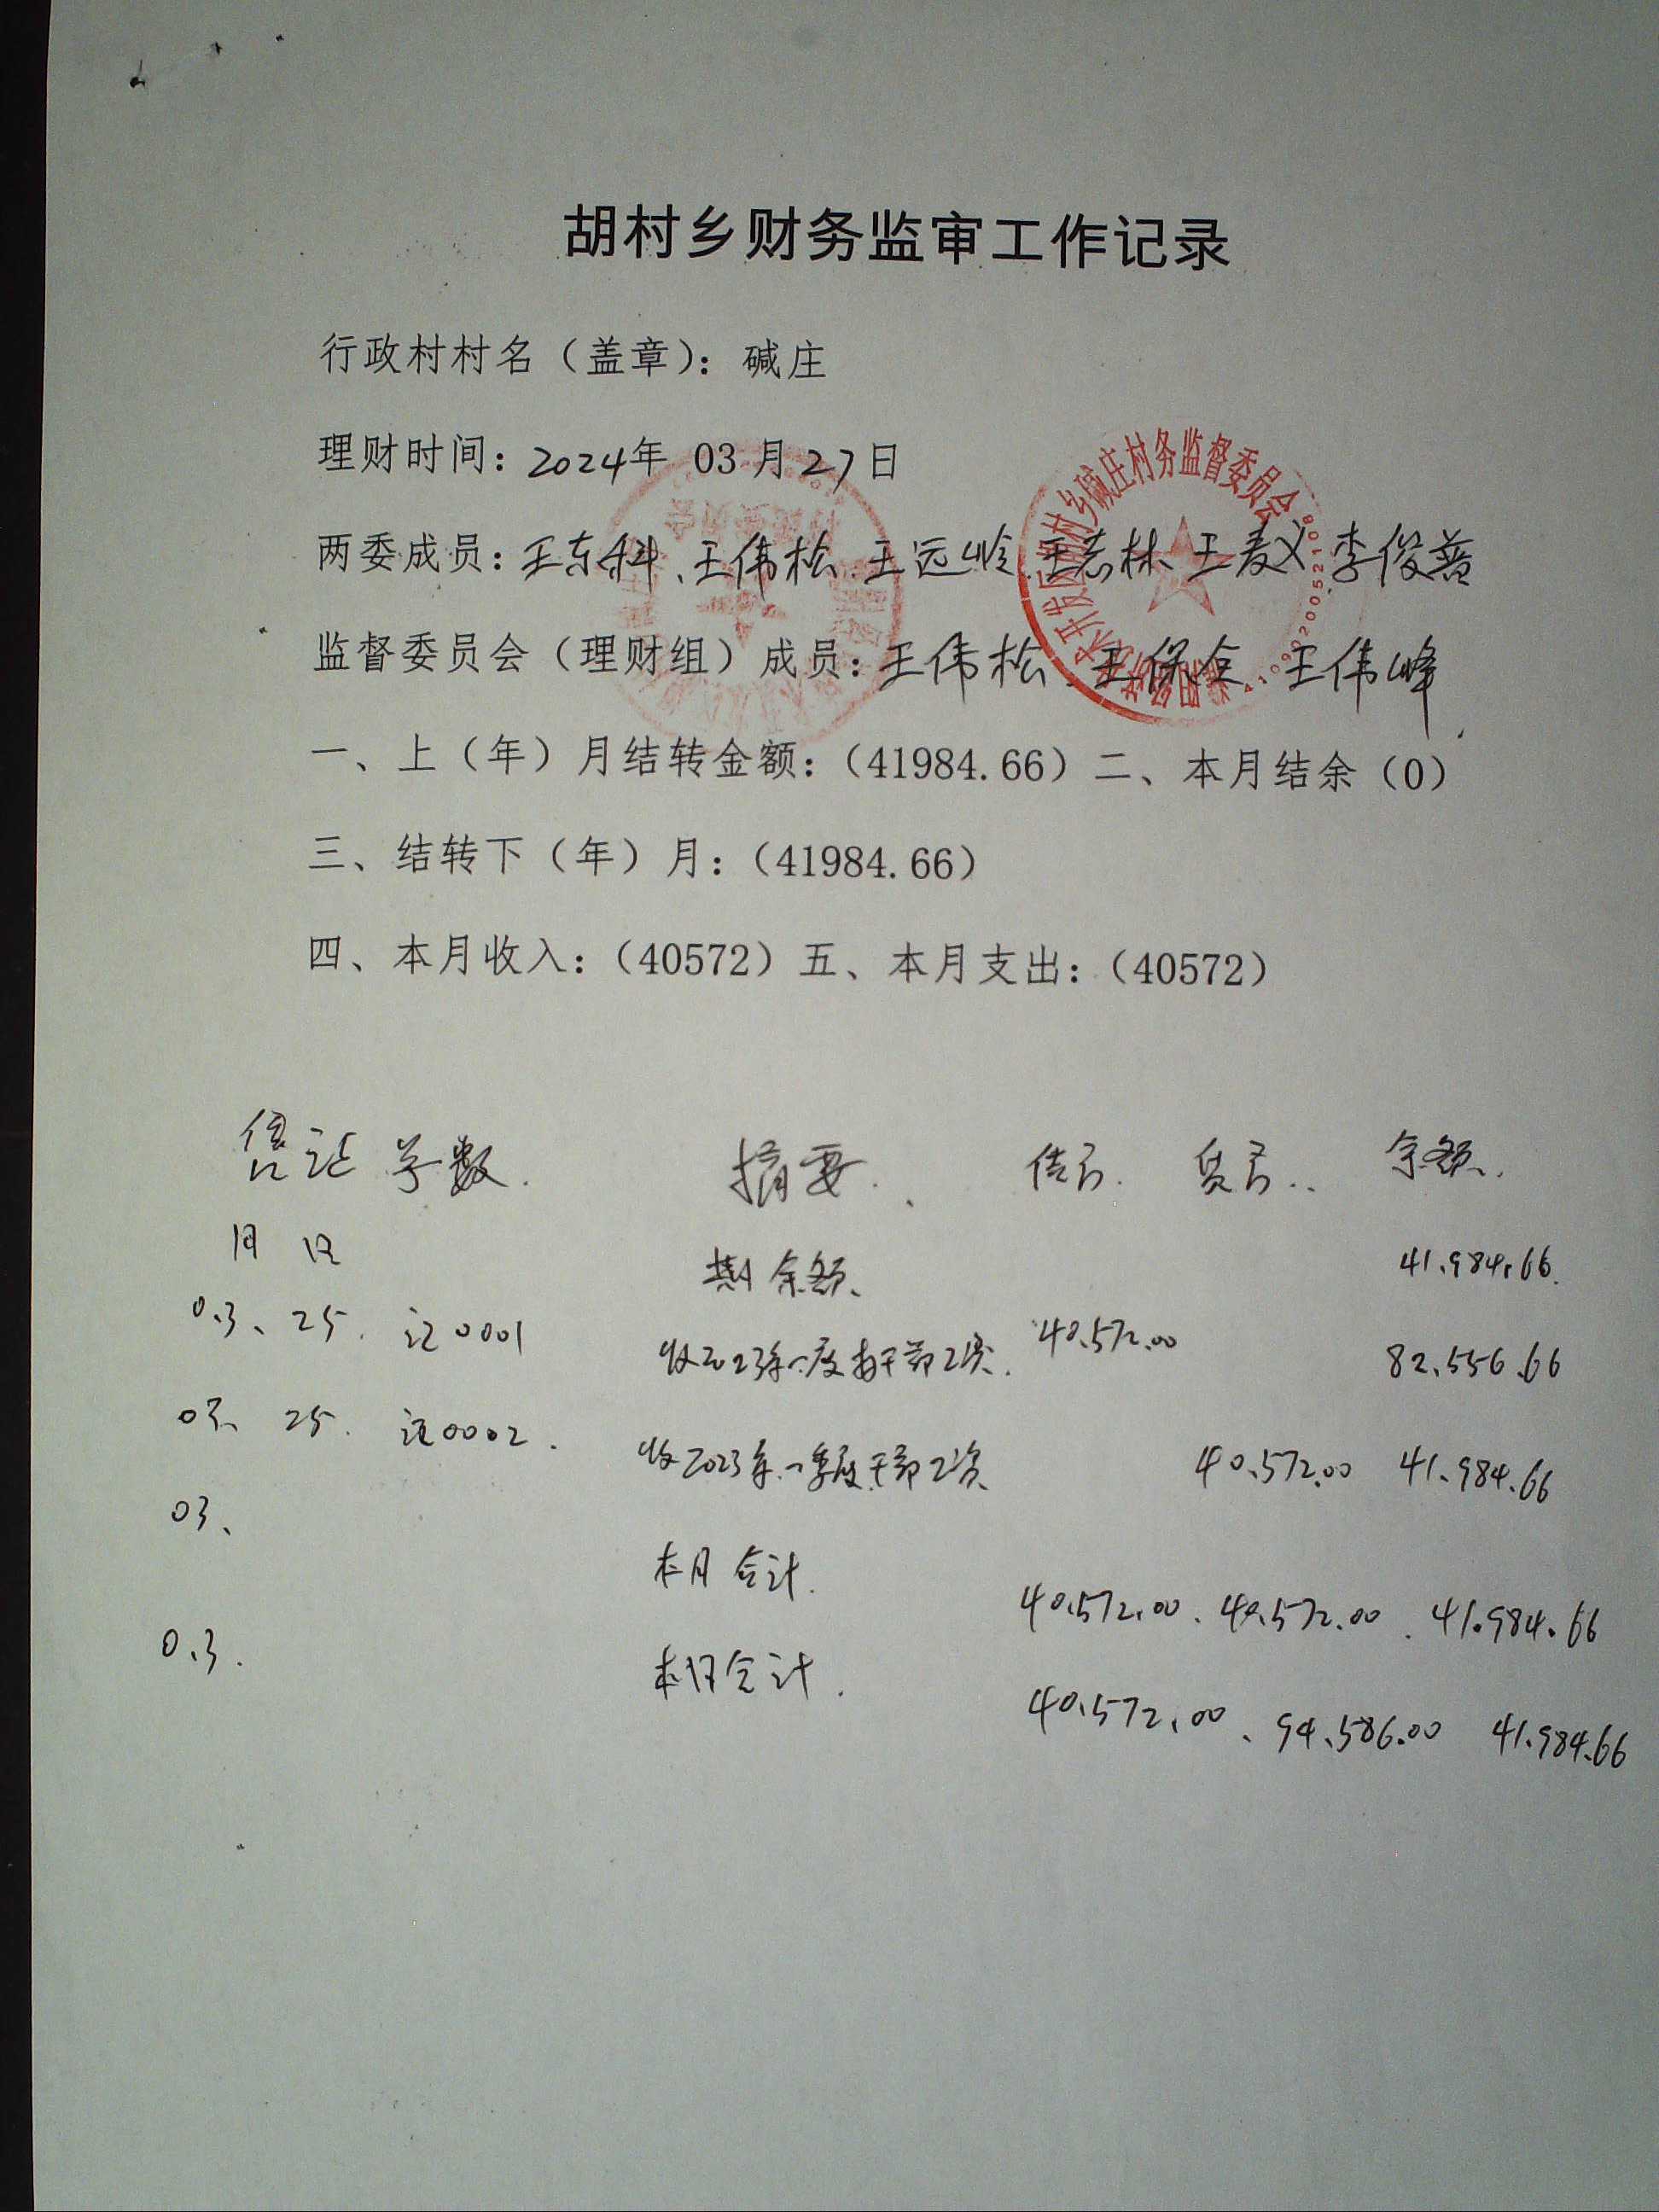 胡村乡财务监审工作记录
行政村村名（盖章）：碱庄
理财时间：2024年 03月27日
两委成员：王东科、王伟松、王远岭、王志林、王麦义、李俊普
监督委员会（理财组）成员：王伟松、王保全、王伟峰
一、上（年）月结转金额：（41984.66）二、本月结余（0）
三、结转下（年）月：（41984.66）
四、本月收入：（40572）五、本月支出：（40572）
村乡碱庄村务监督委员会
凭证 字数. 摘要. 借方. 贷方.. 余额.
月 日 期 余额 41.984.66.
03、25. 记0001 收2023年一度村干部工资. 40.572.00 82.556.66
03、25. 记0002. 收2023年一季度干部工资 40.572.00 41.984.66
03、 本月合计. 40.572.00. 40.572.00. 41.984.66
03. 合计. 40.572.00、94.586.00 41.984.66